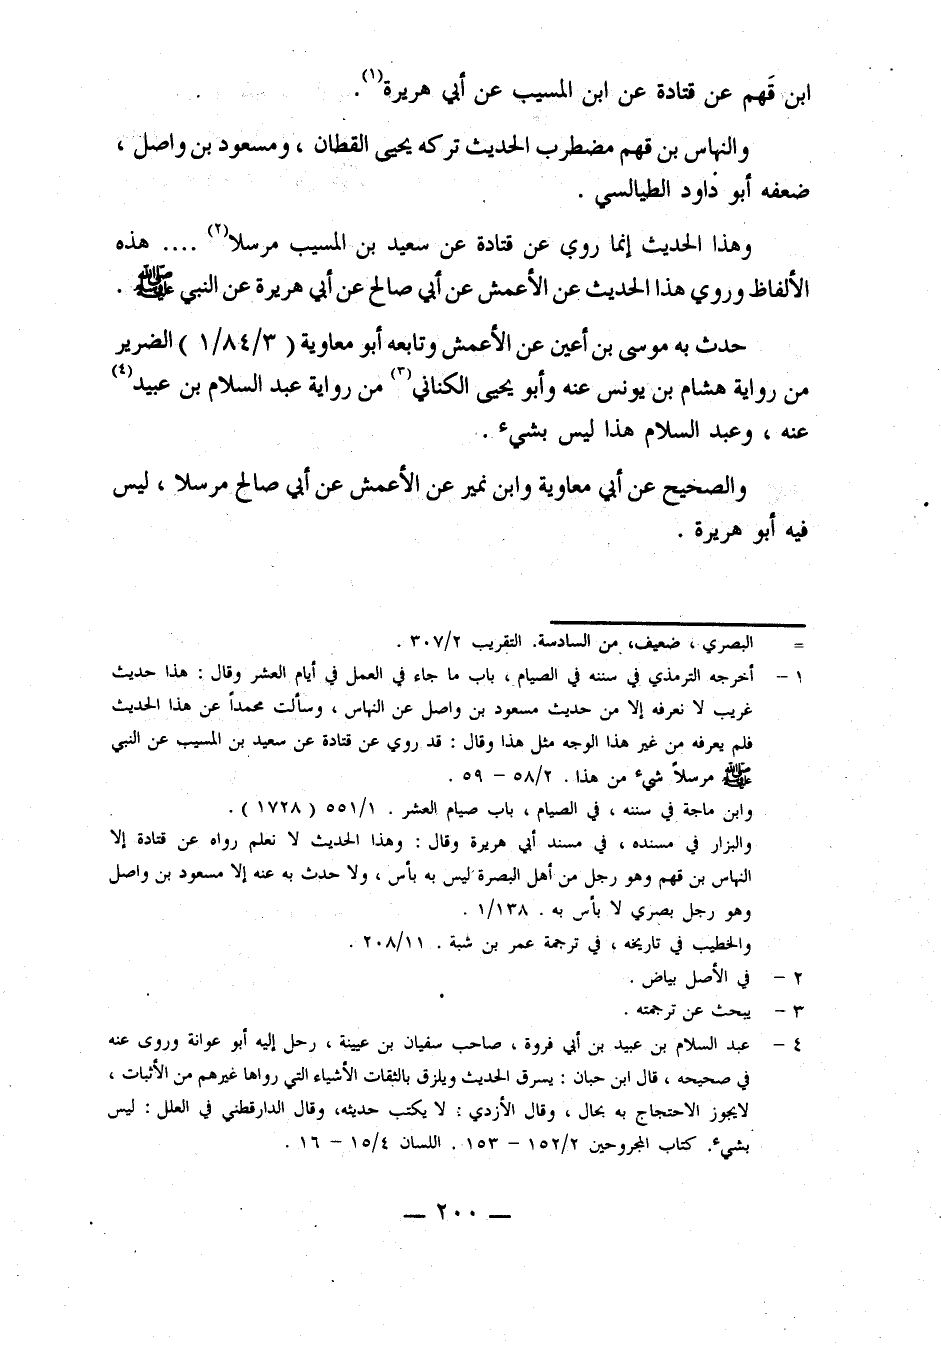 ابن قَهم عن قتادة عن ابن المسيب عن أبي هريرة(١).
والنهاس بن قهم مضطرب الحديث تركه يحيى القطان ، ومسعود بن واصل ،
ضعفه أبو داود الطيالسي .
وهذا الحديث إنما روي عن قتادة عن سعيد بن المسيب مرسلا(٢) .... هذه
الألفاظ وروي هذا الحديث عن الأعمش عن أبي صالح عن أبي هريرة عن النبي ﷺ .
حدث به موسى بن أعين عن الأعمش وتابعه أبو معاوية ( ١/٨٤/٣ ) الضرير
من رواية هشام بن يونس عنه وأبو يحيى الكناني(٣) من رواية عبد السلام بن عبيد(٤)
عنه ، وعبد السلام هذا ليس بشيء .
والصحيح عن أبي معاوية وابن نمير عن الأعمش عن أبي صالح مرسلا ، ليس
فيه أبو هريرة .
= البصري ، ضعيف، من السادسة. التقريب ٣٠٧/٢ .
١ – أخرجه الترمذي في سننه في الصيام ، باب ما جاء في العمل في أيام العشر وقال : هذا حديث
غريب لا نعرفه إلا من حديث مسعود بن واصل عن النهاس ، وسألت محمداً عن هذا الحديث
فلم يعرفه من غير هذا الوجه مثل هذا وقال : قد روي عن قتادة عن سعيد بن المسيب عن النبي
ﷺ مرسلاً شيء من هذا . ٥٨/٢ – ٥٩ .
وابن ماجة في سننه ، في الصيام ، باب صيام العشر . ٥٥١/١ ( ١٧٢٨ ) .
والبزار في مسنده ، في مسند أبي هريرة وقال : وهذا الحديث لا نعلم رواه عن قتادة إلا
النهاس بن قهم وهو رجل من أهل البصرة ليس به بأس ، ولا حدث به عنه إلا مسعود بن واصل
وهو رجل بصري لا بأس به . ١/١٣٨ .
والخطيب في تاريخه ، في ترجمة عمر بن شبة . ٢٠٨/١١ .
٢ – في الأصل بياض .
٣ – يبحث عن ترجمته .
٤ – عبد السلام بن عبيد بن أبي فروة ، صاحب سفيان بن عيينة ، رحل إليه أبو عوانة وروى عنه
في صحيحه ، قال ابن حبان : يسرق الحديث ويلزق بالثقات الأشياء التي رواها غيرهم من الأثبات ،
لايجوز الاحتجاج به بحال ، وقال الأزدي : لا يكتب حديثه، وقال الدارقطني في العلل : ليس
بشيء. كتاب المجروحين ١٥٢/٢ – ١٥٣ . اللسان ١٥/٤ – ١٦ .
— ٢٠٠ —